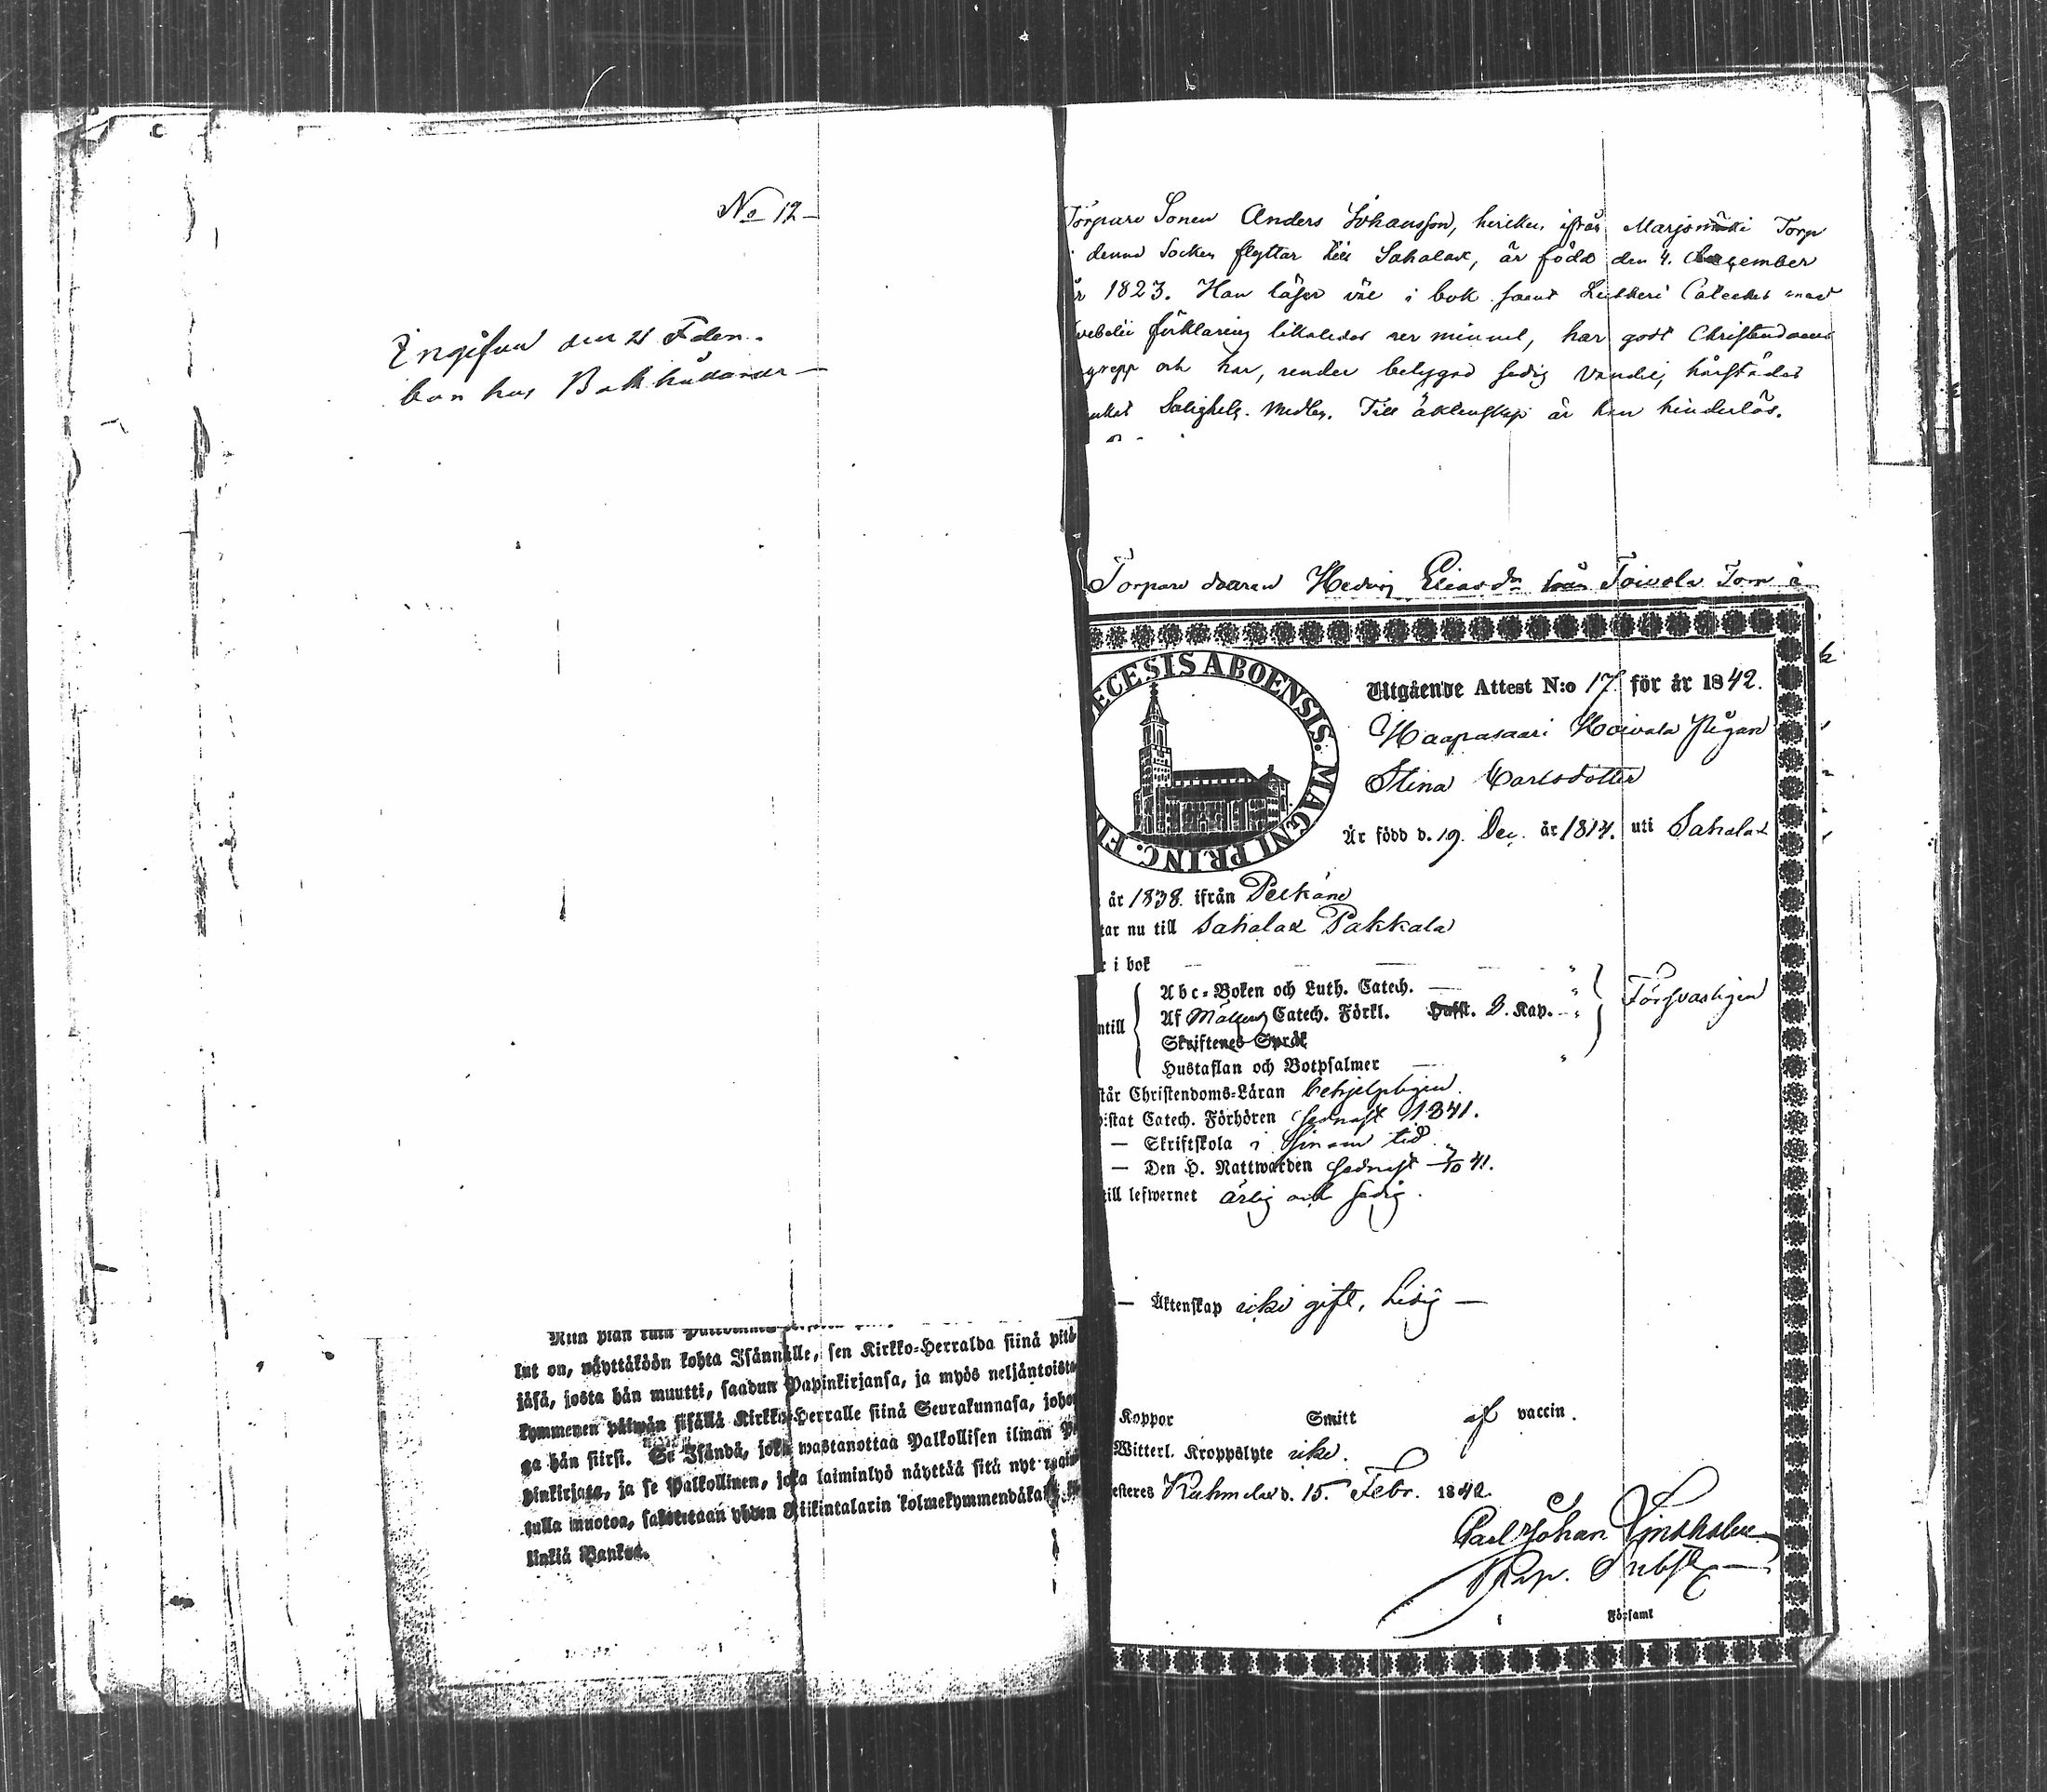 No 12
den 21 Febr.
hos Bokhållaren
Niin pian kuin
lut on, näyttäköön kohta Isännälle, sen Kirkko-Herralda siinä pitä-
jäsä, josta hän muutti, saadun Papinkirjansa, ja myös neljäntoista-
kymmenen päiwän sisällä Kirkko-Herralle siinä Seurakunnasa, johon-
ga hän siirsi. Se Isändä, joka wastanottaa Palkollisen ilman Pa-
pinkirjata, ja se Palkollinen, joka laiminlyö näyttää sitä nyt mainit-
tulla muotoa, sakotetaan yhden Riikintalarin kolmekymmendäkaksi kil-
linkiä Bankoa.
Torpare Sonen Anders Johansson, hvilken ifrån Marjomäki Torp
i denna Socken flyttar till Sahalax, är född den 4. December
år 1823. Han läser väl i bok samt Lutheri Cateches med
Svebelii förklaring likaledes ur minnet, har godt Christendoms
begrepp och har, under betygad sedig vandel, härstädes
Salighets Medlen. Till äktenskap är han hinderlös.
Torpare dottren Hedvig Eliasdr från Toivola Torp i
DIOECESIS ABOENSIS. MAGNI PRINC. FI
Utgående Attest N:o 17 för år 1842.
Haapasaari Hoivala Pigan
Stina Carlsdotter
Är född d. 19. Dec. år 1814. uti Sahalax
år 1838 ifrån Pelkäne
tar nu till Sahalax Pakkala
r i bok
Abc-Boken och Luth. Catech.
ntill Af Catech. Förkl. Hufst. D. Kap. Försvarligen
Skriftenes Språk
Hustaflan och Botpsalmer
står Christendoms-Läran behjelpligen.
istat Catech. Förhören sednast 1841.
— Skriftskola i sinom tid.
— Den H. Nattwarden sednast 41.
till lefwernet ärlig och sedig.
— Äktenskap icke gift, ledig —
Koppor Smitt af vaccin.
Witterl. Kroppslyte icke.
esteres Kuhmalax d. 15. Febr. 1842.
Carl Johan Lindholm
Församl